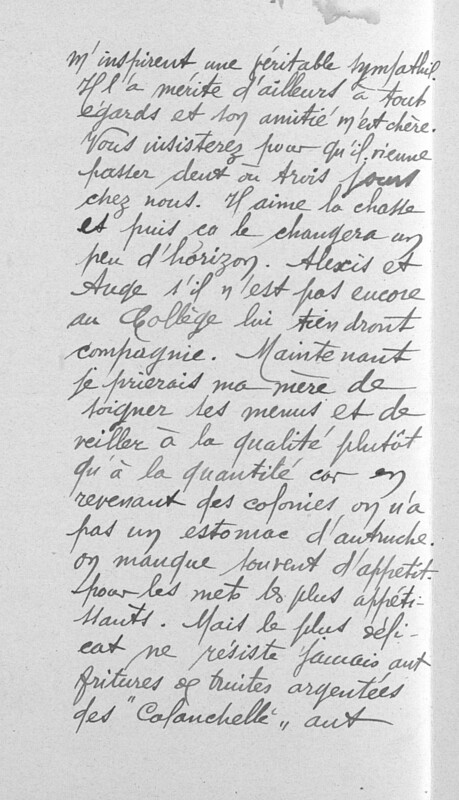 m'inspirent une véritable sympathie.
Il l'a mérite d'ailleurs à tout
égards et son amitié m'est chère.
Vous insisterez pour qu'il vienne
passer deux ou trois jours
chez nous. Il aime la chasse
et puis ça le changera un
peu d'horizon. Alexis et
Auge s'il n'est pas encore
au Collège lui tiendront
compagnie. Maintenant
je prierais ma mère de
soigner ses menus et de
veiller à la qualité plutôt
qu'à la quantité car en
revenant des colonies on n'a
pas un estomac d'autruche.
on manque souvent d'appétit.
pour les mets les plus appéti-
ssants. Mais le plus déli-
cat ne résiste jamais aux
fritures de truites argentées
des "Calanchelle" aux